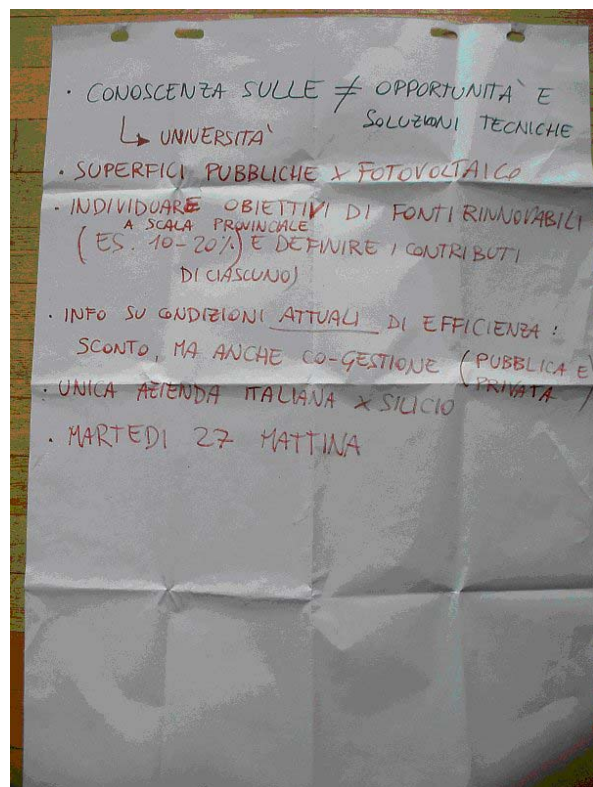 · CONOSCENZA SULLE ≠ OPPORTUNITA' E
SOLUZIONI TECNICHE
↳ UNIVERSITA'
· SUPERFICI PUBBLICHE X FOTOVOLTAICO
· INDIVIDUARE OBIETTIVI DI FONTI RINNOVABILI
A SCALA PROVINCIALE
(ES. 10-20%) E DEFINIRE I CONTRIBUTI
DI CIASCUNO)
· INFO SU CONDIZIONI ATTUALI DI EFFICIENZA :
SCONTO, MA ANCHE CO-GESTIONE (PUBBLICA E
PRIVATA)
· UNICA AZIENDA ITALIANA X SILICIO
· MARTEDI 27 MATTINA